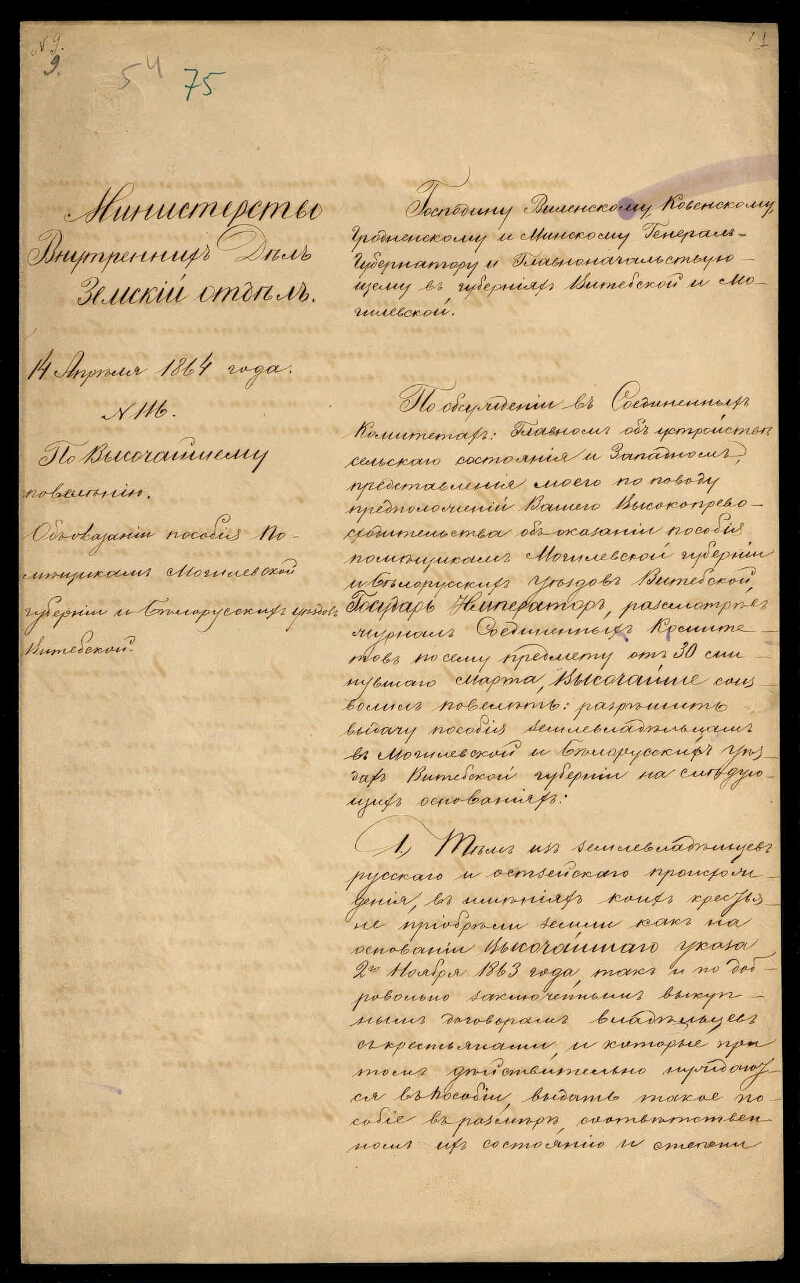 N 9.
9.
54 75
1
Министерство
Внутреннихъ Дѣлъ
Земскій отдѣлъ.
14 Апрѣля 1864 года.
N 116.
По Высочайшему
повелѣнію.
Объ оказаніи пособія по-
мѣщикамъ Могилевской
губерніи и Бѣлорусскихъ уѣздовъ
Витебской.
Господину Виленскому, Ковенскому,
Гродненскому и Минскому Генералъ-
Губернатору и Главноначальствую-
щему въ губерніяхъ Витебской и Мо-
гилевской.
По обсужденіи въ Соединенныхъ
Комитетахъ: Главномъ объ устройствѣ
сельскаго состоянія и Западномъ,
представленія моего по поводу
предположеній Вашего Высокопрево-
сходительства объ оказаніи пособія
помѣщикамъ Могилевской губерніи
и Бѣлорусскихъ уѣздовъ Витебской,
Государь Императоръ, разсмотрѣвъ
журналъ Соединенныхъ Комите-
товъ по сему предмету отъ 30 ми-
нувшаго Марта, Высочайше соиз-
волилъ повелѣть: разрѣшить
выдачу пособія землевладѣльцамъ
въ Могилевской и Бѣлорусскихъ уѣз-
дахъ Витебской губерніи на слѣдую-
щихъ основаніяхъ:
1, Тѣмъ изъ землевладѣльцевъ
русскаго и остзейскаго происхож-
денія, въ имѣніяхъ коихъ крестья
не пріобрѣли земли какъ на
основаніи Высочайшаго указа
2го Ноября 1863 года, такъ и по доб-
ровольно заключеннымъ выкуп-
нымъ договорамъ владѣльцевъ
съ крестьянами, и которые при
томъ дѣйствительно нуждают-
ся въ пособіи, выдать такое по-
собіе въ размѣрѣ, соотвѣтствен-
номъ ихъ состоянію и степени